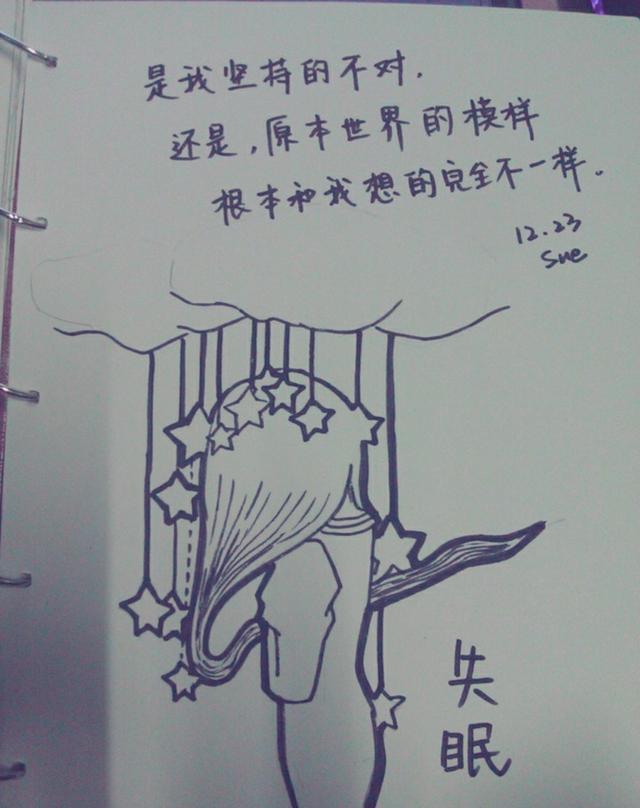 是我坚持的不对.
还是,原本世界的模样
根本和我想的完全不一样.
12.23
Sue
失
眠